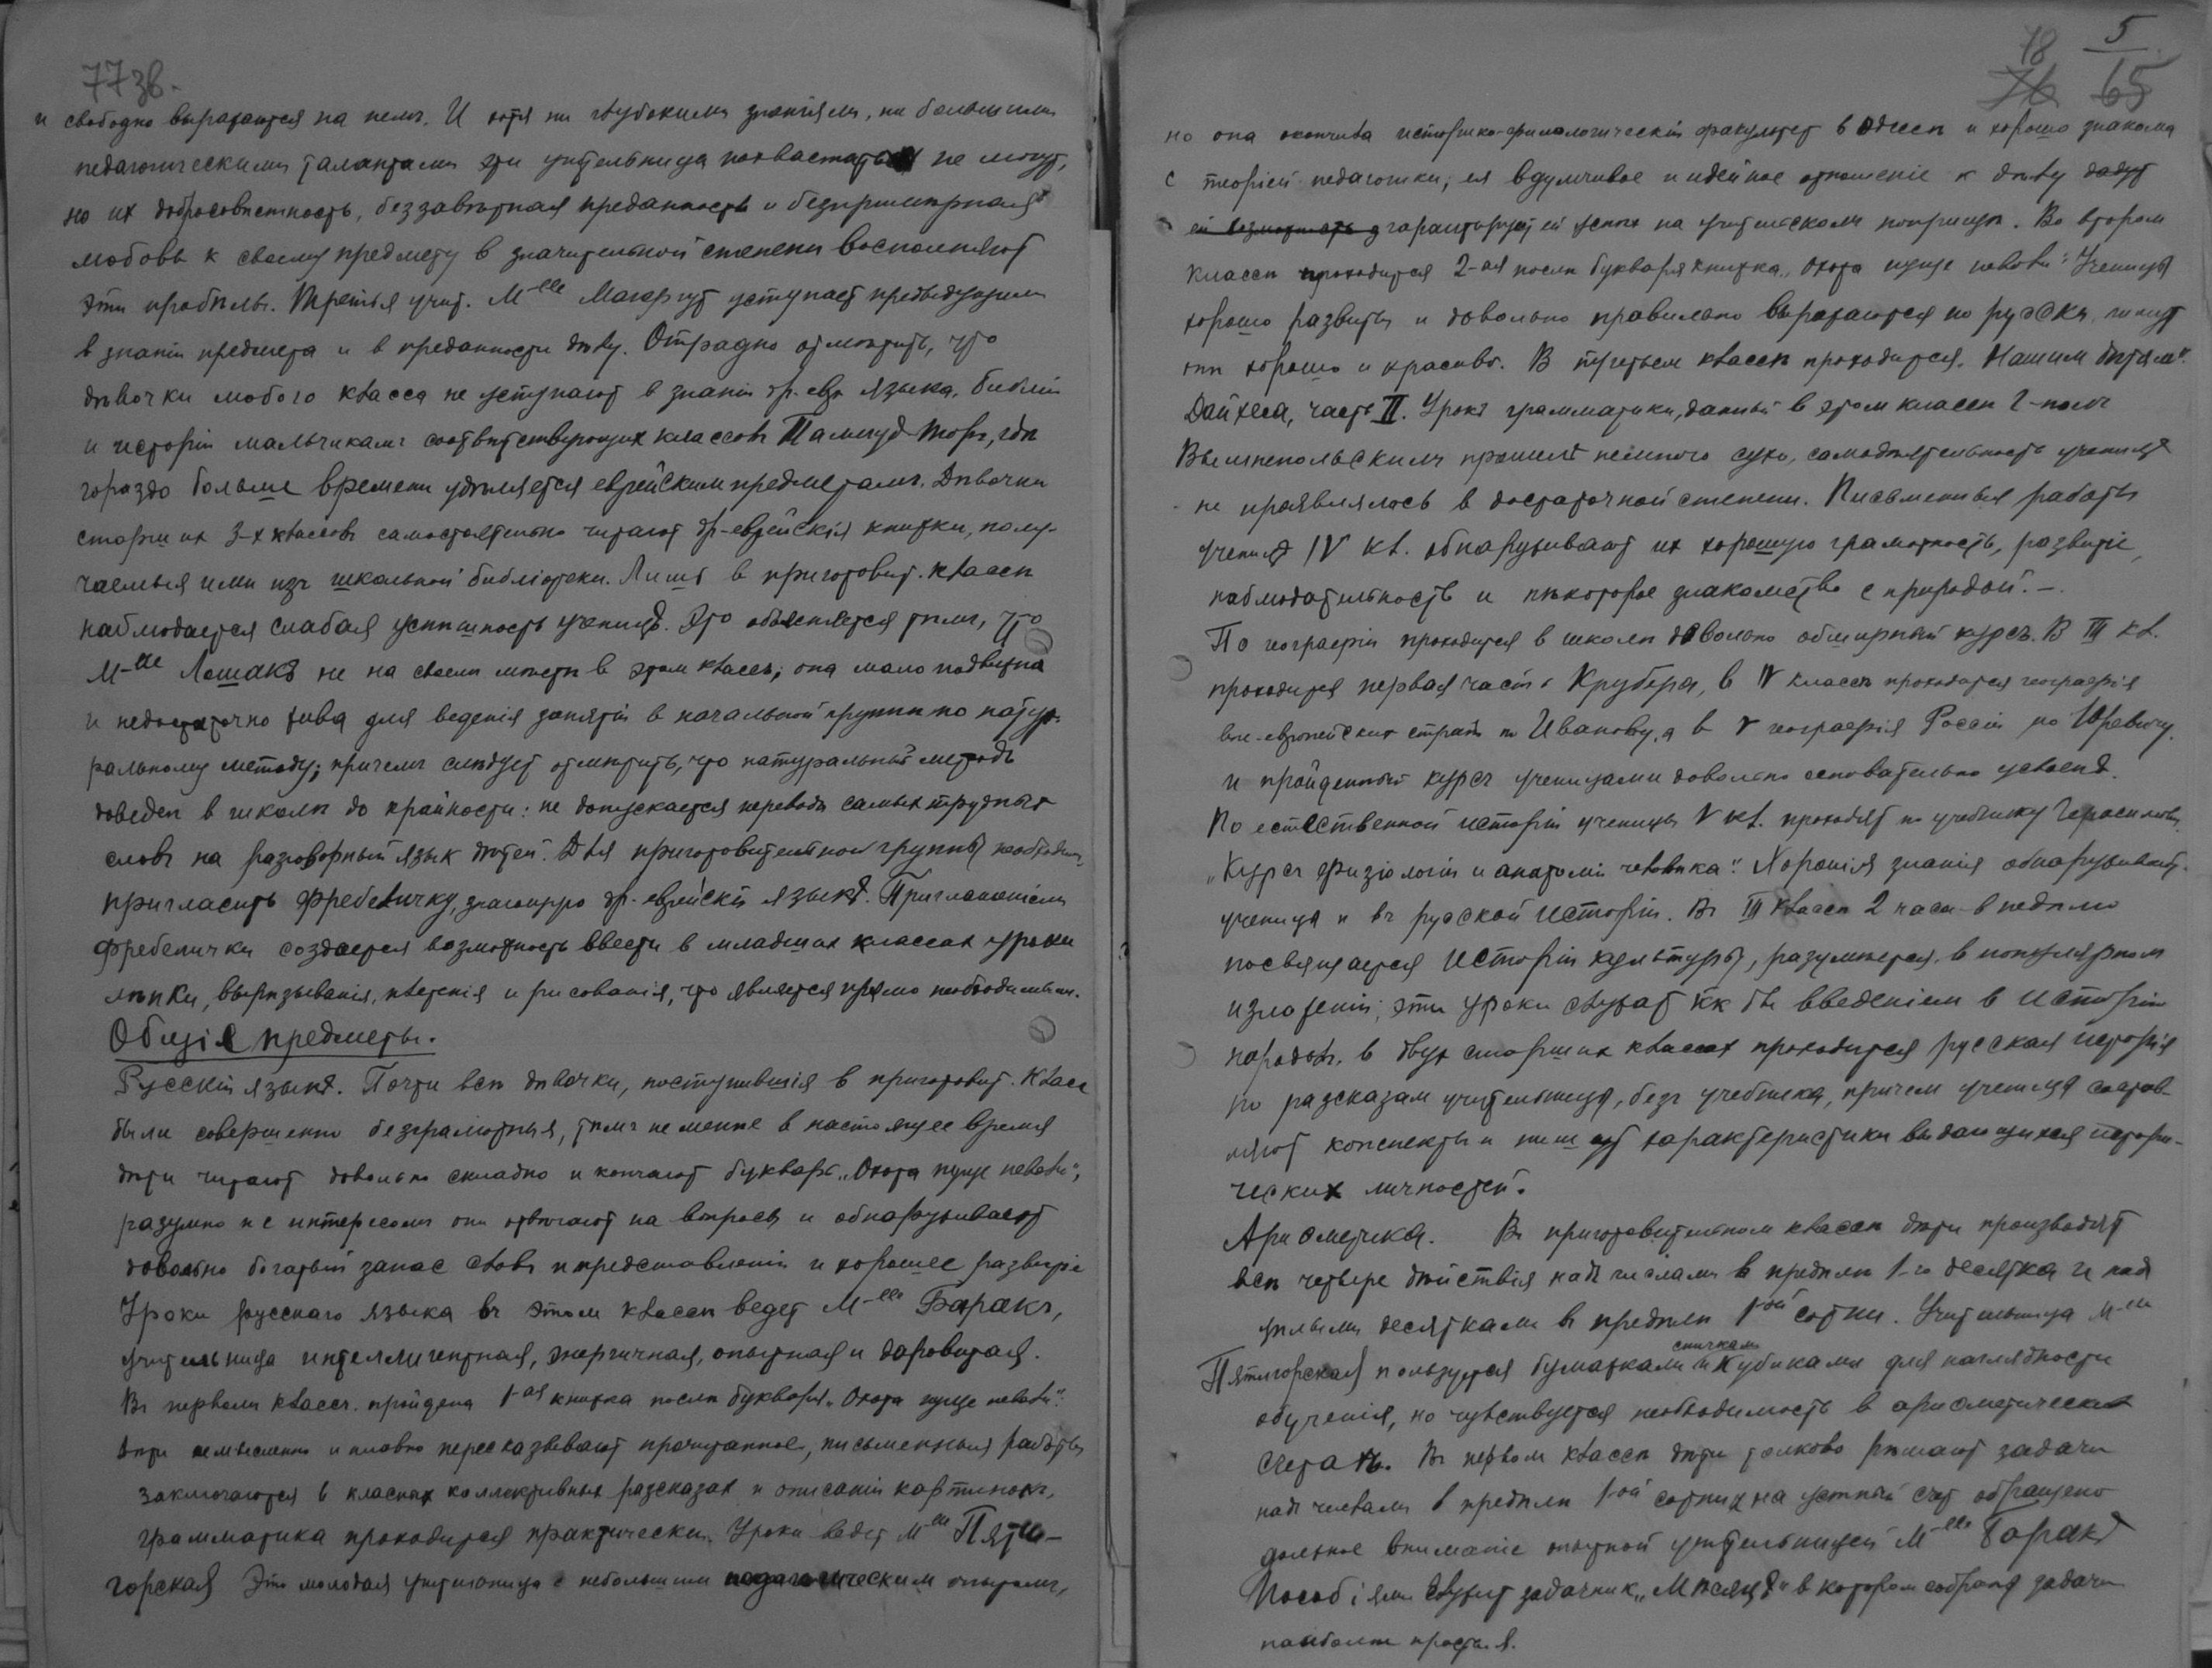 77зв.
и свободно выражаются на немъ. И хотя ни глубокими знаніями, ни большими
педагогическими талантами эти учительницы похвастать не могут,
но их добросовѣстность, беззавѣтная преданность и безпримѣрная
любовь к своему предмету в значительной степени восполняют
эти пробѣлы. Третья учит. М-lle Магаргут уступает предыдущим
в знаніи предмета и в преданности дѣлу. Отрадно отмѣтить, что
дѣвочки любого класса не уступают в знаніи др.-евр. языка, библіи
и исторіи мальчикамъ соотвѣтствующих классовъ Талмуд-Торы, гдѣ
гораздо больше времени удѣляется еврейским предметамъ. Дѣвочки
старших 3-х классовъ самостоятельно читают др.-еврейскія книжки, полу-
чаемыя ими изъ школьной библіотеки. Лишь в приготовит. классѣ
наблюдается слабая успѣшность ученицъ. Это объясняется тѣмъ, что
М-lle Лошакъ не на своем мѣстѣ в этом классѣ; она мало подвижна
и недостаточно жива для веденія занятій в начальной группѣ по нату-
ральному методу; причемъ слѣдует отмѣтить, что натуральный методъ
доведен в школѣ до крайности: не допускается переводъ самых трудных
словъ на разговорный язык дѣтей. Для приготовительной группы необходимо
пригласить фребеличку, знающую др.-еврейскій языкъ. Приглашеніем
фребелички создается возможность ввести в младших классах уроки
лѣпки, вырѣзыванія, плетенія и рисованія, что является прямо необходимым.
Общіе предметы.
Русскій языкъ. Почти всѣ дѣвочки, поступившія в приготовит. класс
были совершенно безграмотны, тѣмъ не менѣе в настоящее время
дѣти читают довольно складно и кончают букварь „Охота пуще неволи",
разумно и с интересомъ они отвѣчают на вопросы и обнаруживают
довольно богатый запас словъ и представленій и хорошее развитіе
Уроки русскаго языка въ этом классѣ ведет М-lle Баракъ,
учительница интеллигентная, энергичная, опытная и даровитая.
Въ первом классѣ пройдена 1-ая книжка послѣ букваря „Охота пуще неволи".
Дѣти осмысленно и плавно пересказывают прочитанное, письменныя работы
заключаются в класных коллективных разсказах и описаніи картинокъ,
грамматика проходится практически. Уроки ведет М-lle Пяти-
горская. Это молодая учительница с небольшим педагогическим опытомъ,
18 5
76 65
но она окончила историко-филологическій факультет в Одессѣ и хорошо знакома
с теоріей педагогики; ея вдумчивое и идейное отношеніе к дѣлу дадут
ей возможность гарантируют ей успѣх на учительском поприщѣ. Во втором
классѣ проходится 2-ая послѣ букваря книжка „Охота пуще неволи". Ученицы
хорошо развиты и довольно правильно выражаются по русски, пишут
онѣ хорошо и красиво. В третьем классѣ проходится „Нашим дѣтям"
Дайхеса, часть II. Урокъ грамматики, данный в этом классѣ г-номъ
Вымпепольскимъ прошелъ немного сухо, самодѣятельность ученицъ
не проявлялось в достаточной степени. Письменныя работы
ученицъ IV кл. обнаруживают их хорошую грамотность, развитіе,
наблюдательность и нѣкоторое знакомство с природой. —
По географіи проходится в школѣ довольно обширный курсъ. В III кл.
проходится первая часть Крубера, в IV классѣ проходится географія
вне-европейских странъ по Иванову, а в V географія Россіи по Юревичу
и пройденный курсъ ученицами довольно основательно усвоенъ.
По естественной исторіи ученицы V кл. проходят по учебнику Герасимова
„Курсъ физіологіи и анатоміи человѣка". Хорошія знанія обнаруживают
ученицы и въ русской исторіи. Въ III классѣ 2 часа в недѣлю
посвящается исторіи культуры, разумѣется, в популярном
изложеніи; эти уроки служат кк бы введеніем в исторію
народовъ. в двух старших классах проходится русская исторія
по разсказам учительницы, безъ учебника, причем ученицы состав-
ляют конспекты и пишут характеристики выдающихся истори-
ческих личностей.
Ариѳметика. Въ приготовительном классѣ дѣти производят
всѣ четыре дѣйствія надъ числами в предѣлѣ 1-го десятка и над
цѣлыми десятками въ предѣлѣ 1-ой сотни. Учительница М-lle
Пятигорская пользуется бумажками спичками и кубиками для наглядности
обученія, но чувствуется необходимость в ариѳметических
счетахъ. Въ первом классѣ дѣти толково рѣшают задачи
надъ числами в предѣлѣ 1-ой сотни, на устный счет обращено
должное вниманіе опытной учительницей М-lle Баракъ
Пособіями служит задачник „Мѣсяцъ" в котором собраны задачи
наиболѣе простыя.